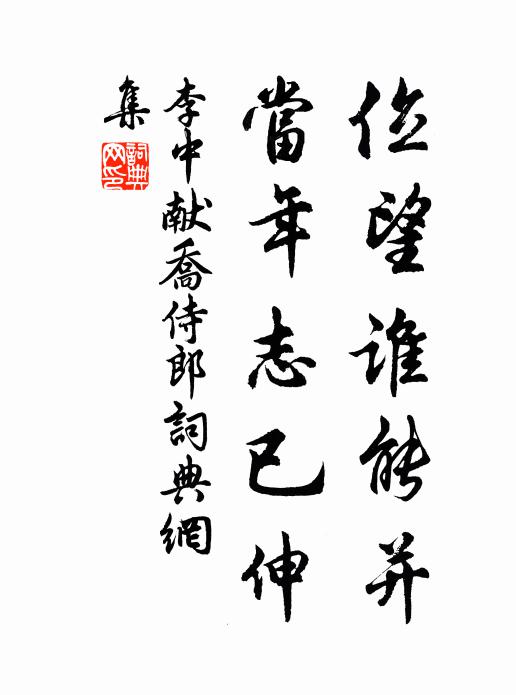 位望谁能并
當年志已伸
李中献喬侍郎詞典網
集
詞典
网印